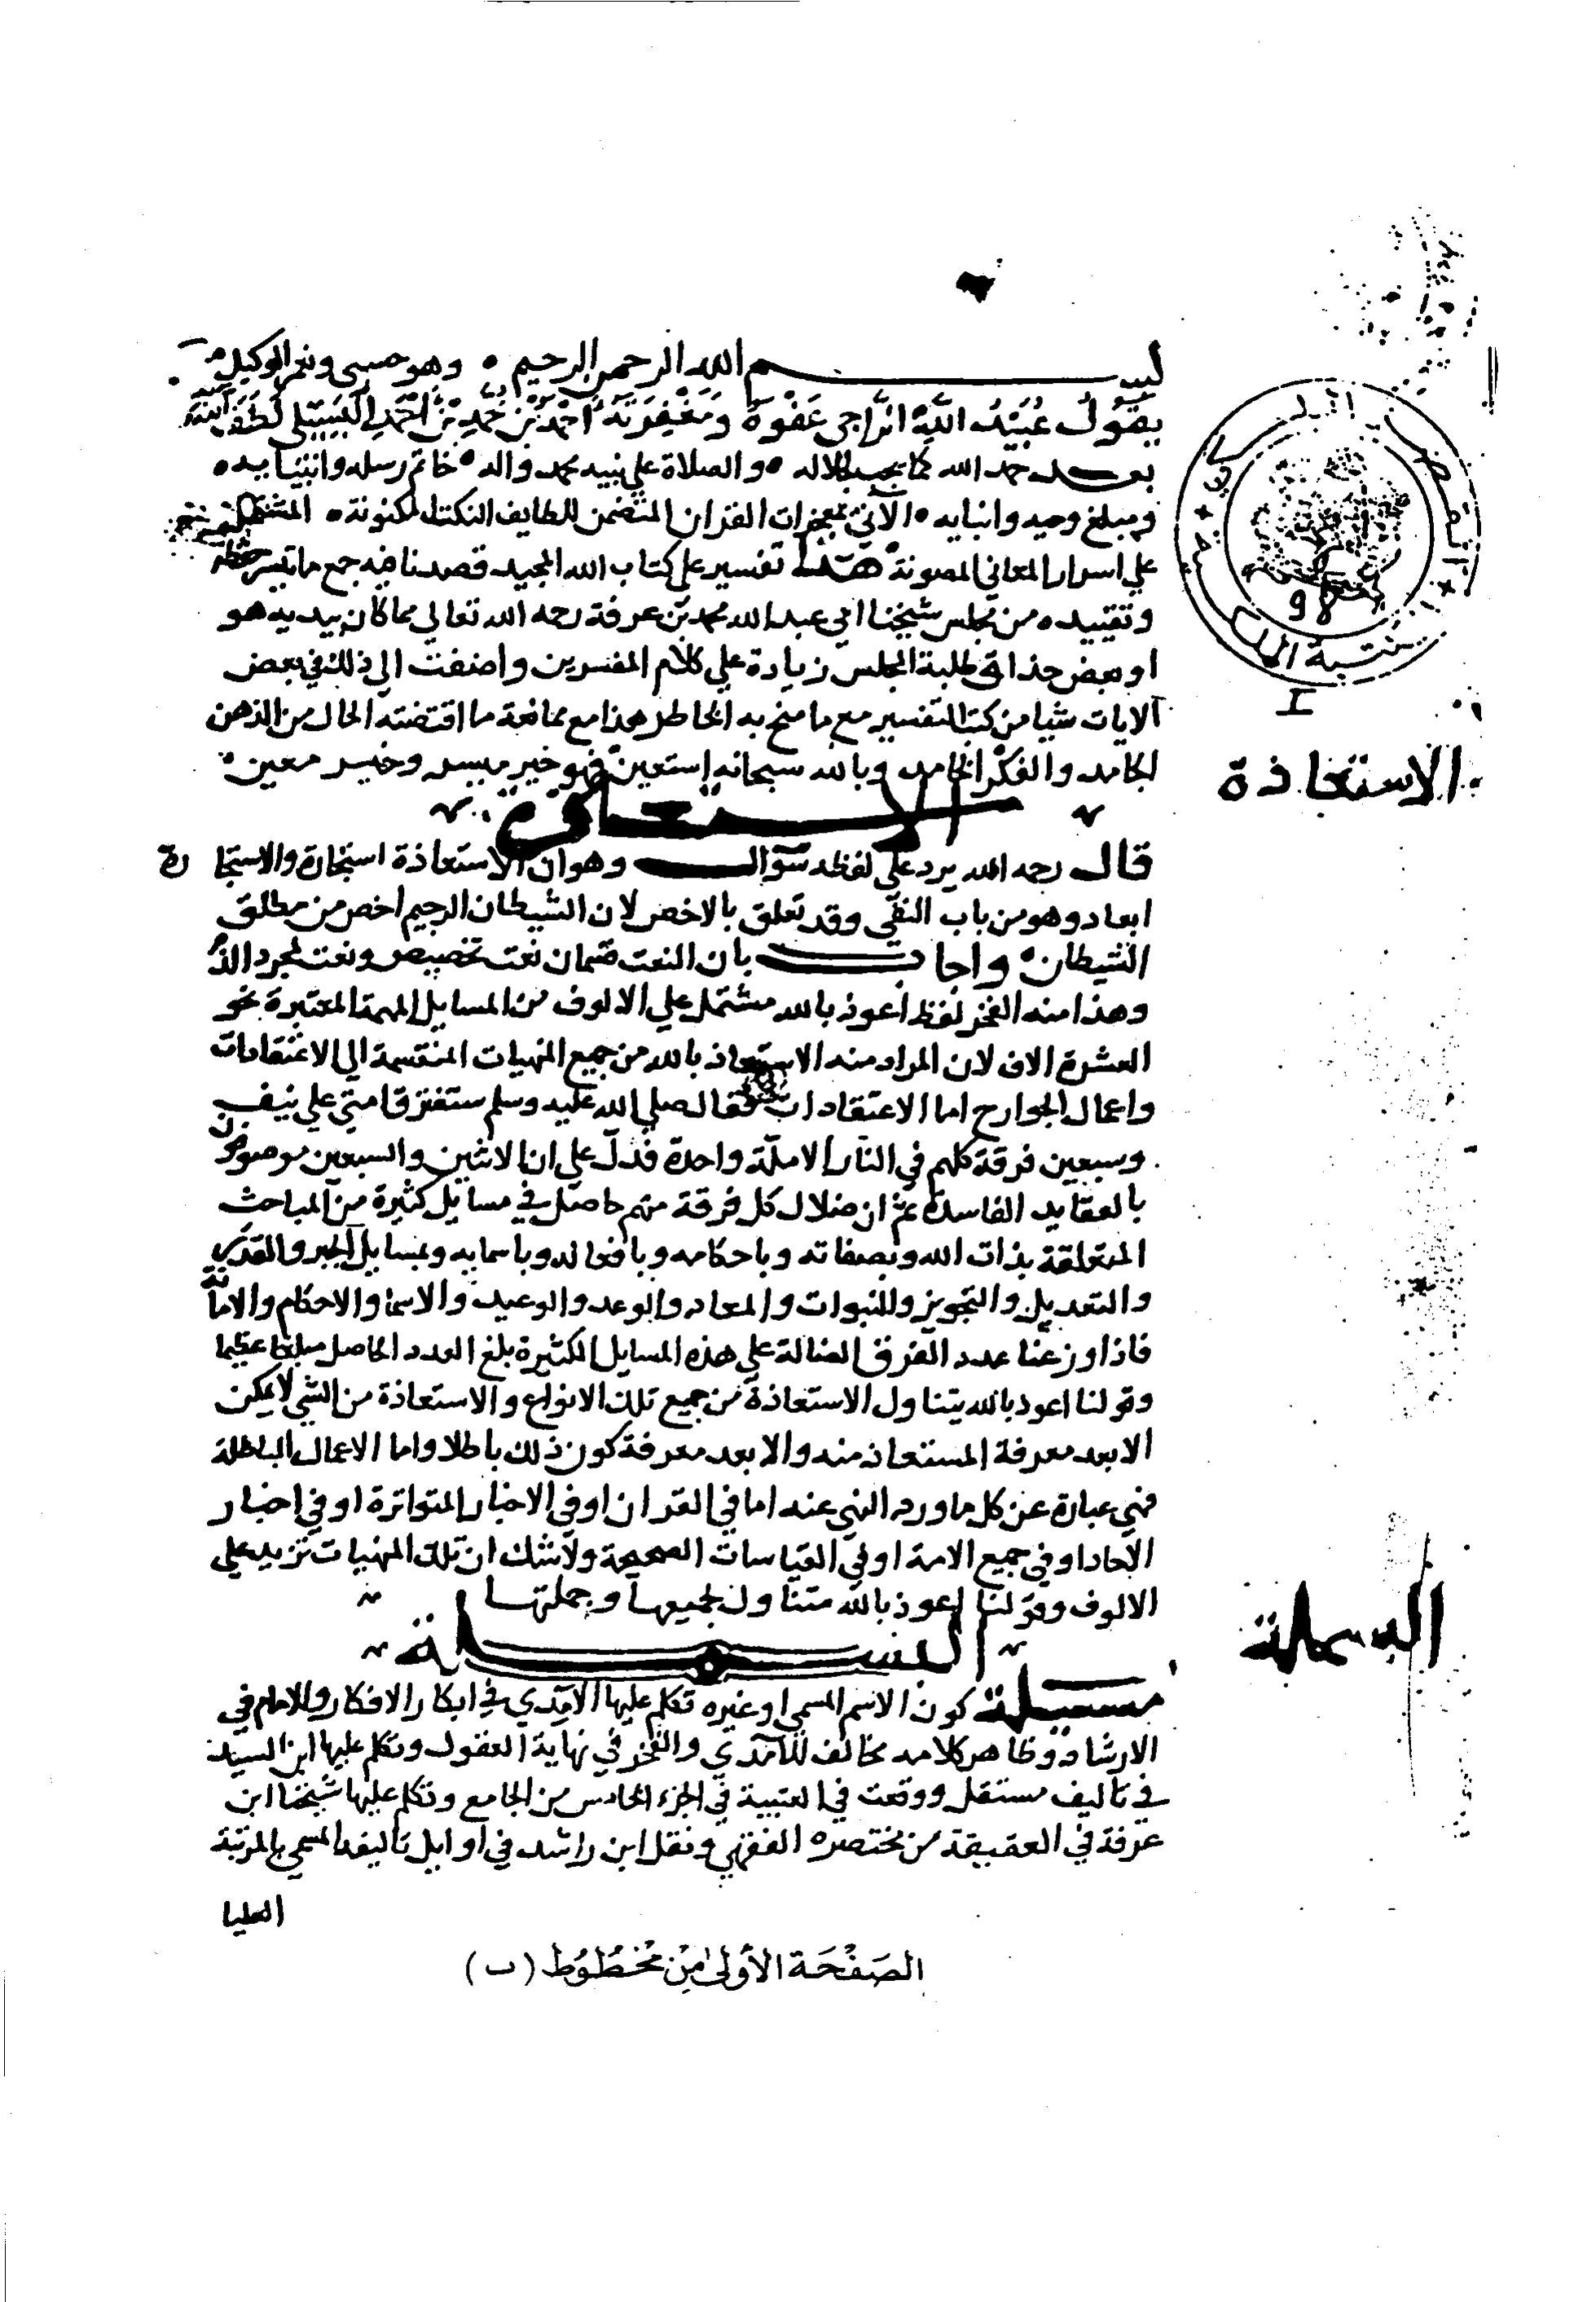 بســـم الله الرحمن الرحيم ۰ وهو حسبي ونعم الوكيل
يقول عبيد الله الراجي عفوه ومغفرته احمد بن محمد بن احمد البسيلي لطف الله به
بعد حمد الله كما يجب لجلاله ۰ والصلاة علي نبيه محمد واله ۰ خاتم رسله وانبيايه ۰
ومبلغ وحيه وانبايه ۰ الآتي بمعجزات القران المتضمن للطايف النكت المكنونة ۰ المشتمل
علي اسرار المعاني المصونة هـذا تفسير علي كتاب الله المجيد قصدنا فيه جمع ما تيسر حفظه
وتقييده من مجلس شيخنا ابي عبد الله محمد بن عرفة رحمه الله تعالي مما كان يبديه هو
او بعض حذاق طلبة المجلس زيادة علي كلام المفسرين واضفت الي ذلك في بعض
الايات شيا من كتب التفسير مع ما سنح به الخاطر هذا مع ممانعة ما اقتضته الحال من الذهن
الجامد والفكر الخامد وبالله سبحانه استعين فهو خير ميسر وخير معين ۰
الاستعاذة
الاستعاذة
قال رحمه الله يرد علي لفظه سؤال وهو ان الاستعاذة استجارة والاستجا رة
ابعاد وهو من باب النفي وقد تعلق بالاخص لان الشيطان الرجيم اخص من مطلق
الشيطان ۰ واجاب بان النعت قسمان نعت تخصيص ونعت لمجرد الذم
وهذا منه الفخر لفظ اعوذ بالله مشتمل علي الالوف من المسايل المهمة المعتبرة نحو
العشرة الاف لان المراد منه الاستعاذ بالله من جميع المنهيات المنقسمة الي الاعتقادات
واعمال الجوارح اما الاعتقادات فقال صلي الله عليه وسلم ستفترق امتي علي نيف
وسبعين فرقة كلهم في النار الا ملة واحدة فدل علي ان الاثنين والسبعين موصوفون
بالعقايد الفاسدة ثم ان ضلال كل فرقة منهم حاصل في مسايل كثيرة من المباحث
المتعلقة بذات الله وبصفاته وباحكامه وبافعاله وباسمايه وبمسايل الجبر والقدر
والتعديل والتجويز والنبوات والمعاد والوعد والوعيد والاسما والاحكام والامامة
فاذا وزعنا عدد الفرق الضالة علي هذه المسايل الكثيرة بلغ العدد الحاصل مبلغا عظيما
وقولنا اعوذ بالله يتناول الاستعاذة من جميع تلك الانواع والاستعاذة من الشي لا يمكن
الا بعد معرفة المستعاذ منه والا بعد معرفة كون ذلك باطلا واما الاعمال الباطلة
فهي عبارة عن كل ما ورد النهي عنه اما في القران او في الاخبار المتواترة او في اخبار
الاحاد او في جميع الامة او في القياسات الصحيحة ولا شك ان تلك المنهيات تزيد علي
الالوف وقولنا اعوذ بالله متناول لجميعها وجملتها
البسملة
البسملة
مسيلة كون الاسم المسمي او غيره تكلم عليها الآمدي في ابكار الافكار والامام في
الارشاد وظاهر كلامه مخالف للآمدي والفخر في نهاية العقول وتكلم عليها ابن السيد
في تاليف مستقل ووقعت في العتبية في الجزء الخامس من الجامع وتكلم عليها شيخنا ابن
عرفة في العقيقة من مختصره الفقهي ونقل ابن راشد في اوايل تاليفه المسمي بالمرتبة
العليا
الصَفْحَة الأولى مِنْ مَخْطُوُط (ب)
98
I